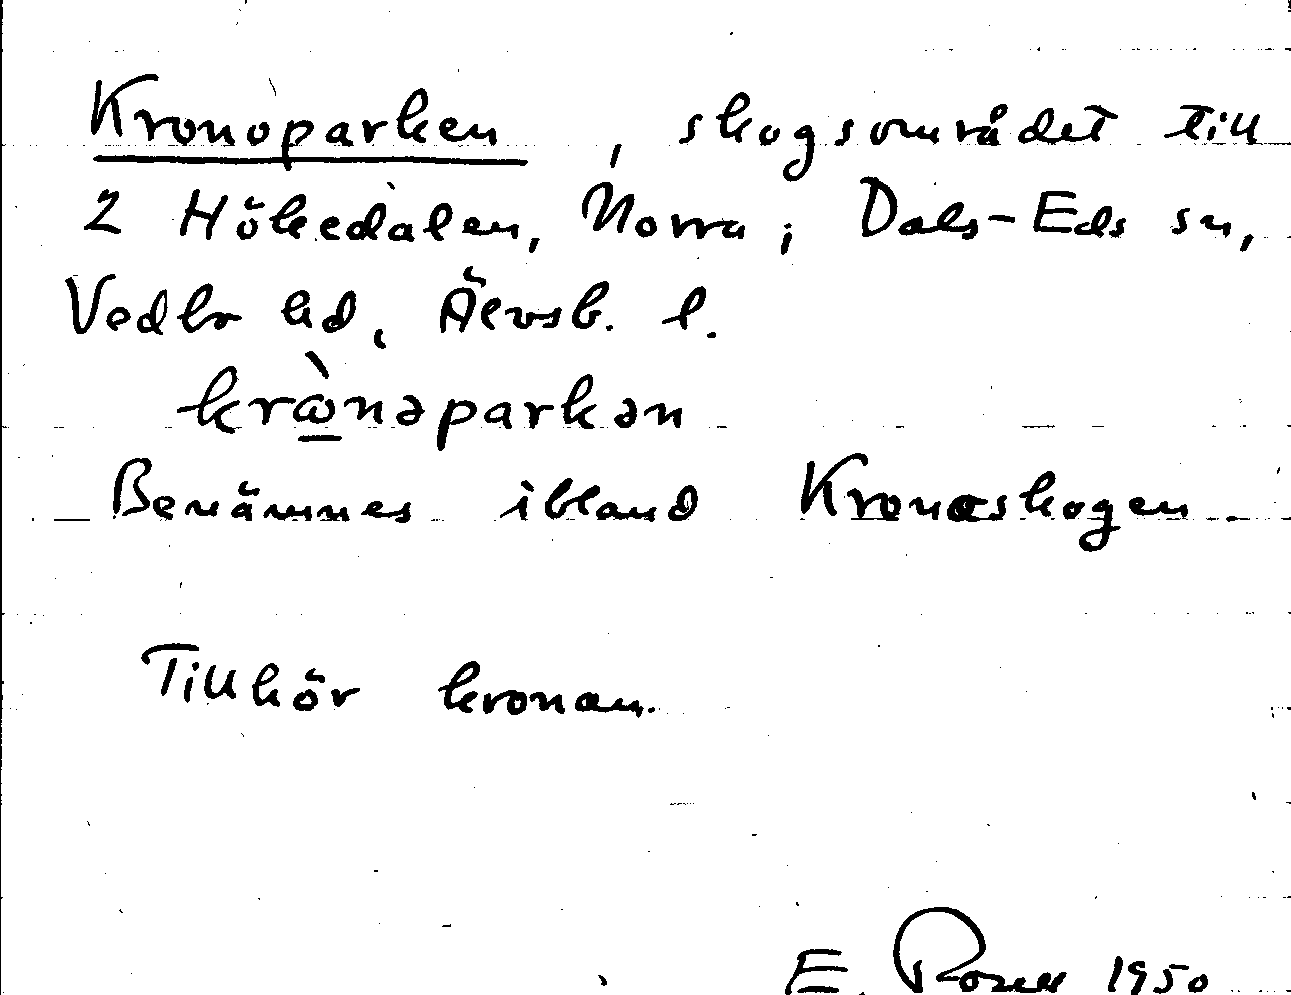 Kronoparken, skogsområdet till
2 Hökedalen, Norra i Dals-Eds sn,
Vedbo hd, Älvsb. l.
krὼnəparkən
Benämnes ibland Kronoskogen.
Tillhör kronan.
E. Rosell 1950